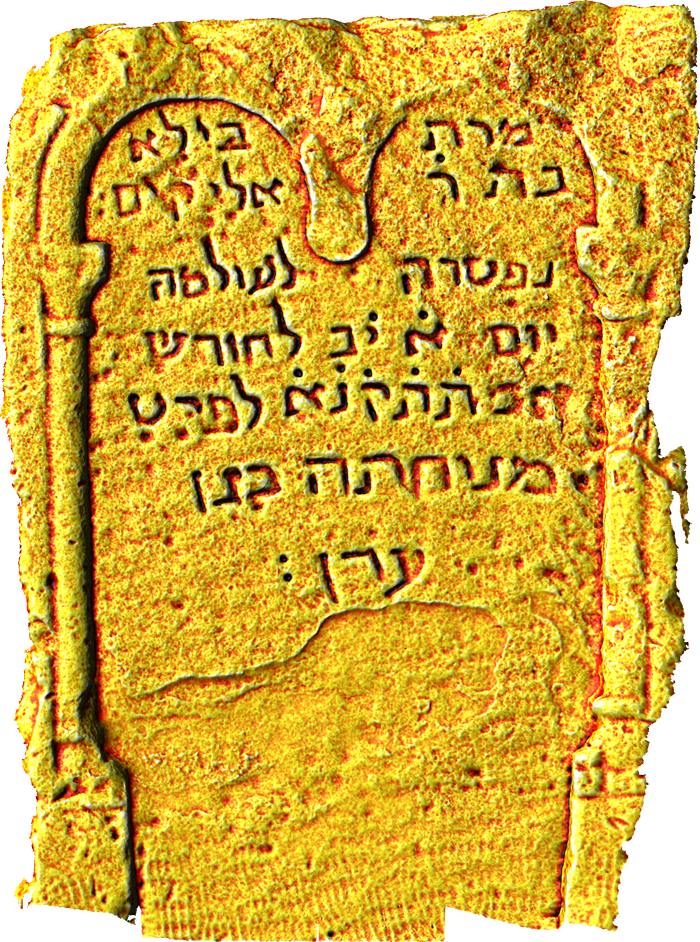 מרת בילא
בת ר׳ אליקים:
נפטרה לעולמה
יום א׳ יב לחודש
אב תתקנא לפרט
מנוחתה בגן
עדן: